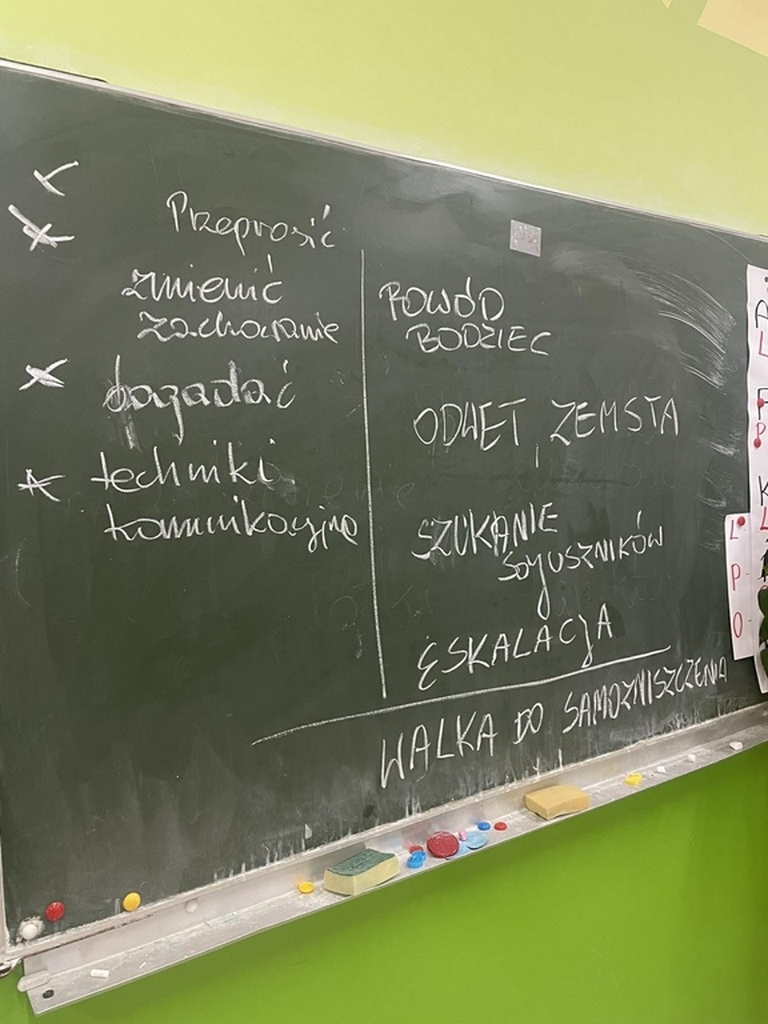 Przeprosić
zmienić
zachowanie
dogadać
techniki
komunikacyjne
POWÓD
BODZIEC
ODWET, ZEMSTA
SZUKANIE
SOJUSZNIKÓW
ESKALACJA
WALKA DO SAMOZNISZCZENIA
L
P
O